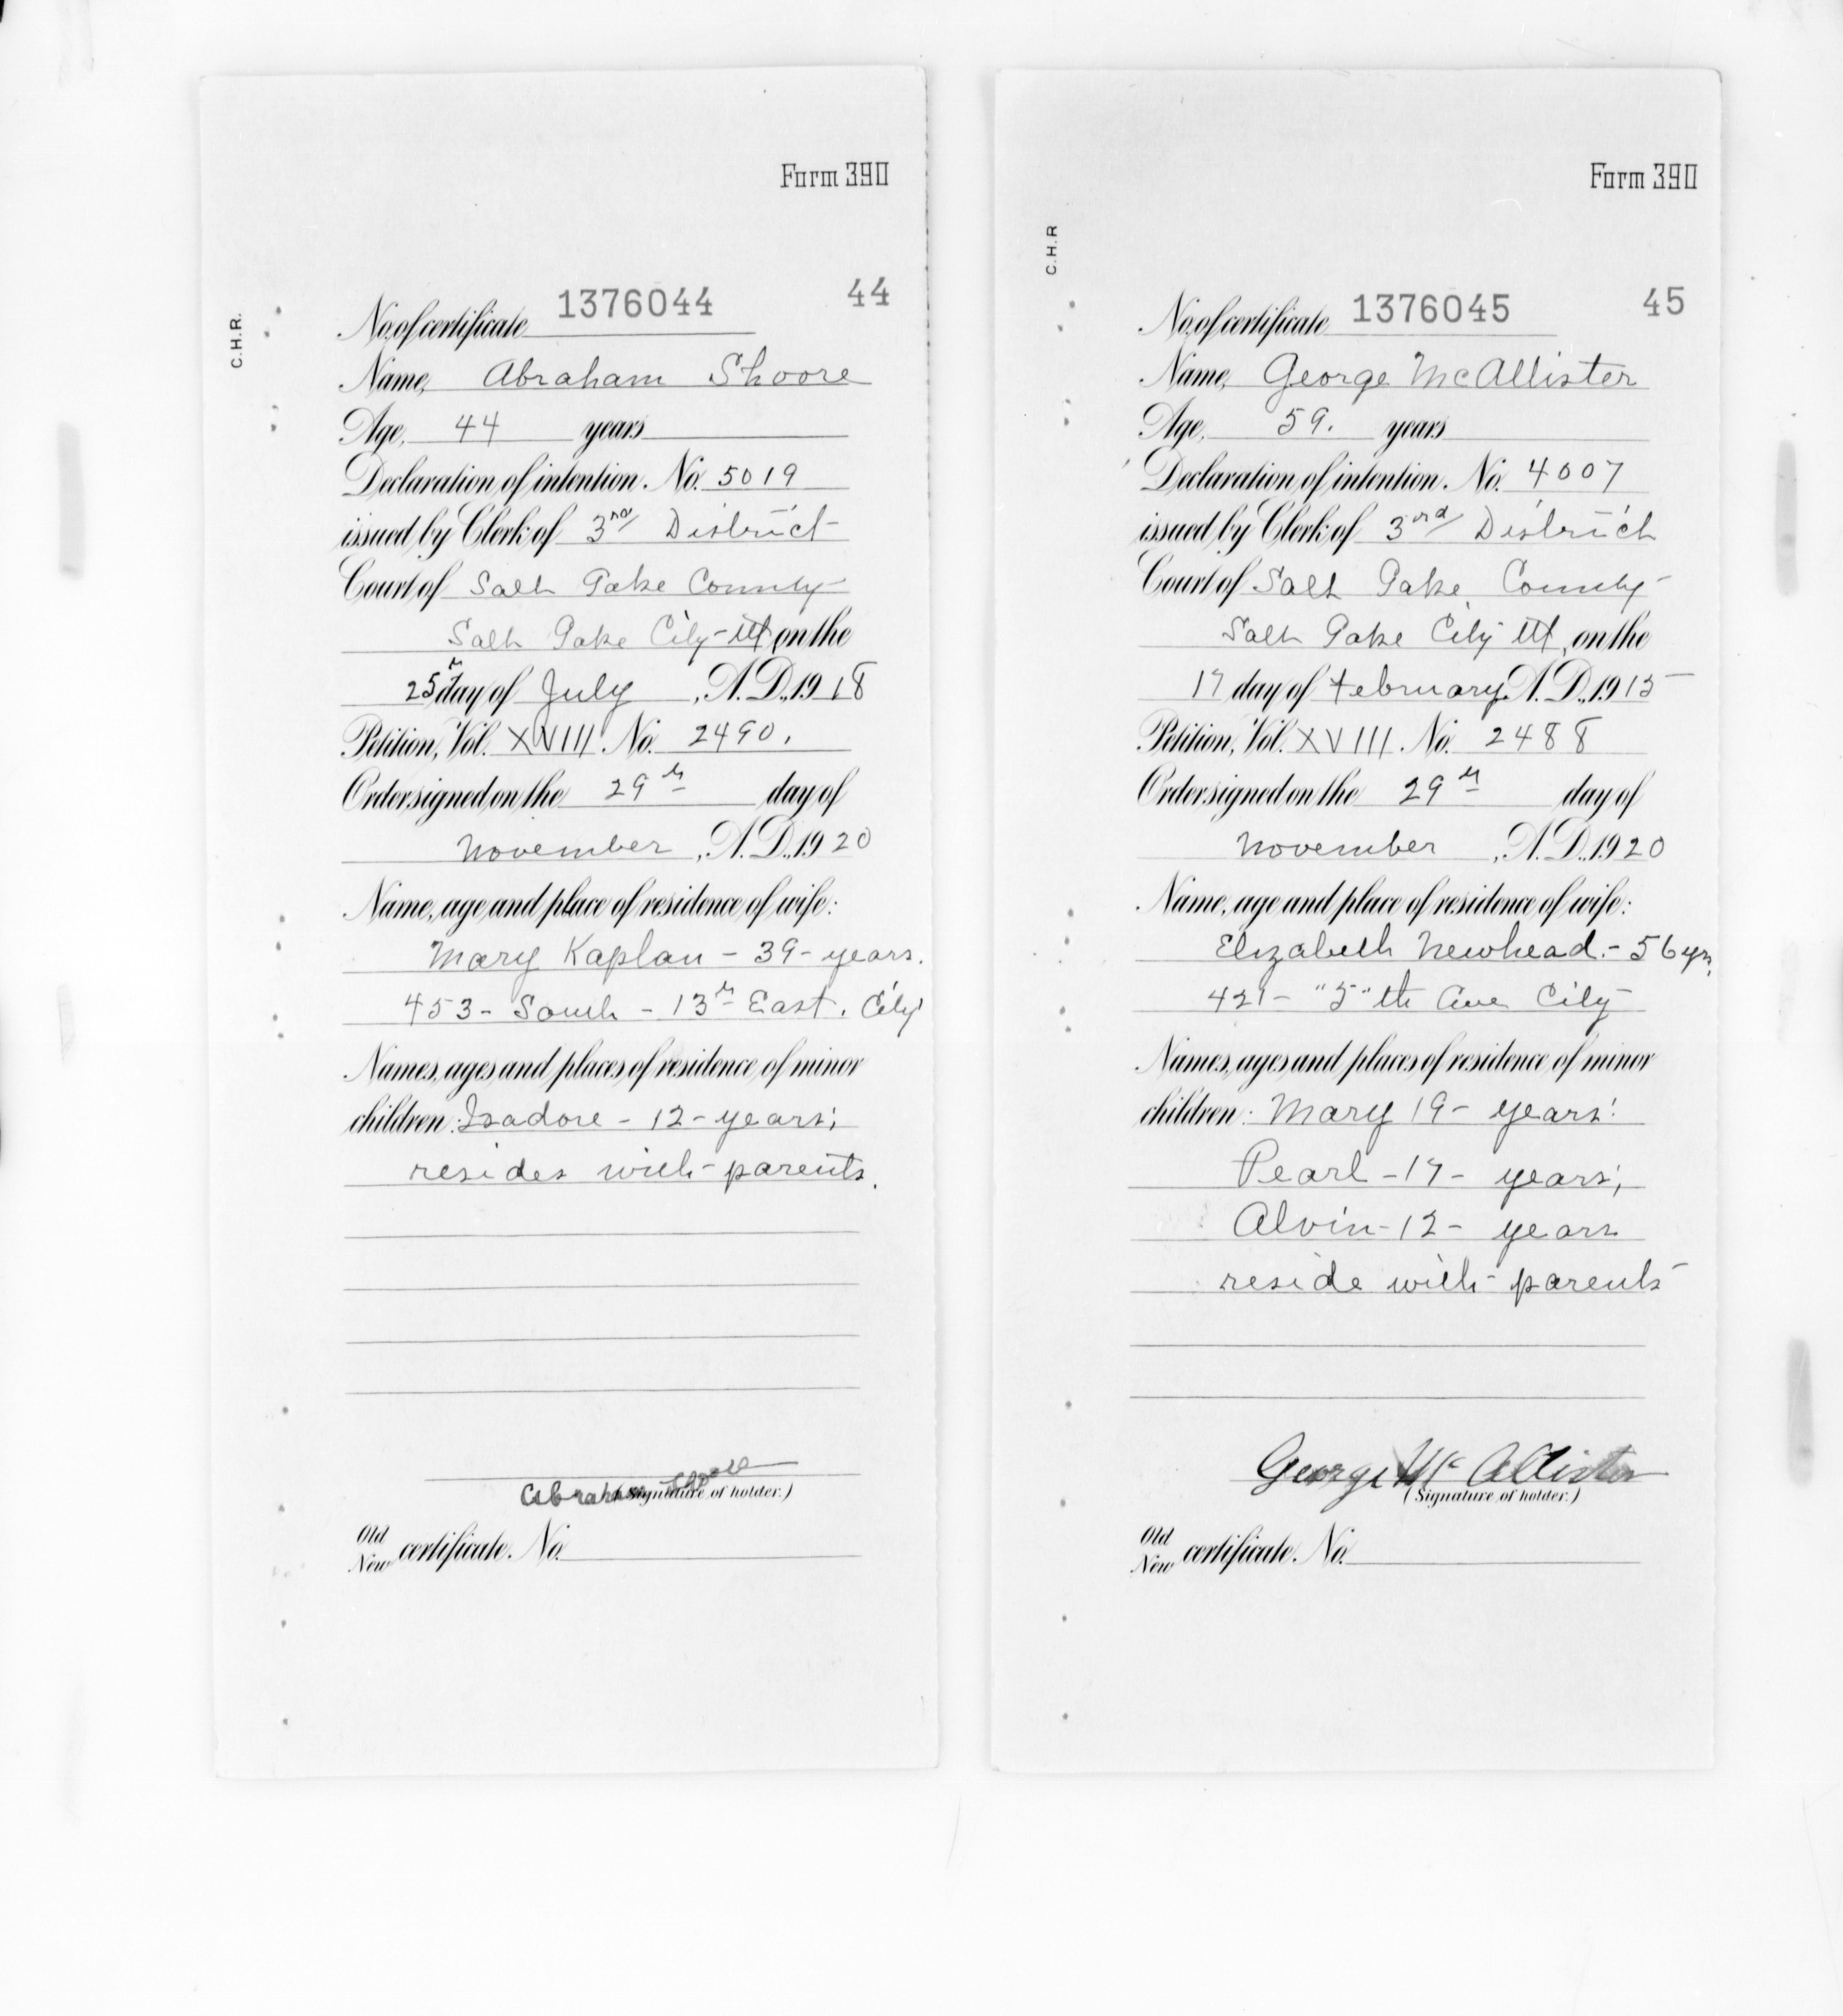 Form 390
C.H.R.
No. of certificate 1376044 44
Name, Abraham Shoore
Age, 44 years
Declaration of intention. No. 5019
issued by Clerk of 3rd District
Court of Salt Lake County
Salt Lake City Ut on the
25th day of July, A.D., 1918
Petition, Vol. XVIII. No. 2490.
Order signed on the 29th day of
November, A.D., 1920
Name, age and place of residence of wife:
Mary Kaplan - 39 - years.
453 - South - 13th East. City
Names, ages and places of residence of minor
children: Isadore - 12 - years;
resides with parents.
Abraham Shoore
(Signature of holder.)
Old
New certificate. No.
Form 390
C.H.R
No. of certificate 1376045 45
Name, George McAllister
Age, 59. years
Declaration of intention. No. 4007
issued by Clerk of 3rd District
Court of Salt Lake County
Salt Lake City Ut, on the
17 day of February, A.D., 1915
Petition, Vol. XVIII. No. 2488
Order signed on the 29th day of
November, A.D., 1920
Name, age and place of residence of wife:
Elizabeth Newhead. - 56 yrs.
421 - "5"th Ave City
Names, ages and places of residence of minor
children: Mary 19 - years:
Pearl - 17 - years;
Alvin - 12 - years
reside with parents
George Mc Allister
(Signature of holder.)
Old
New certificate. No.